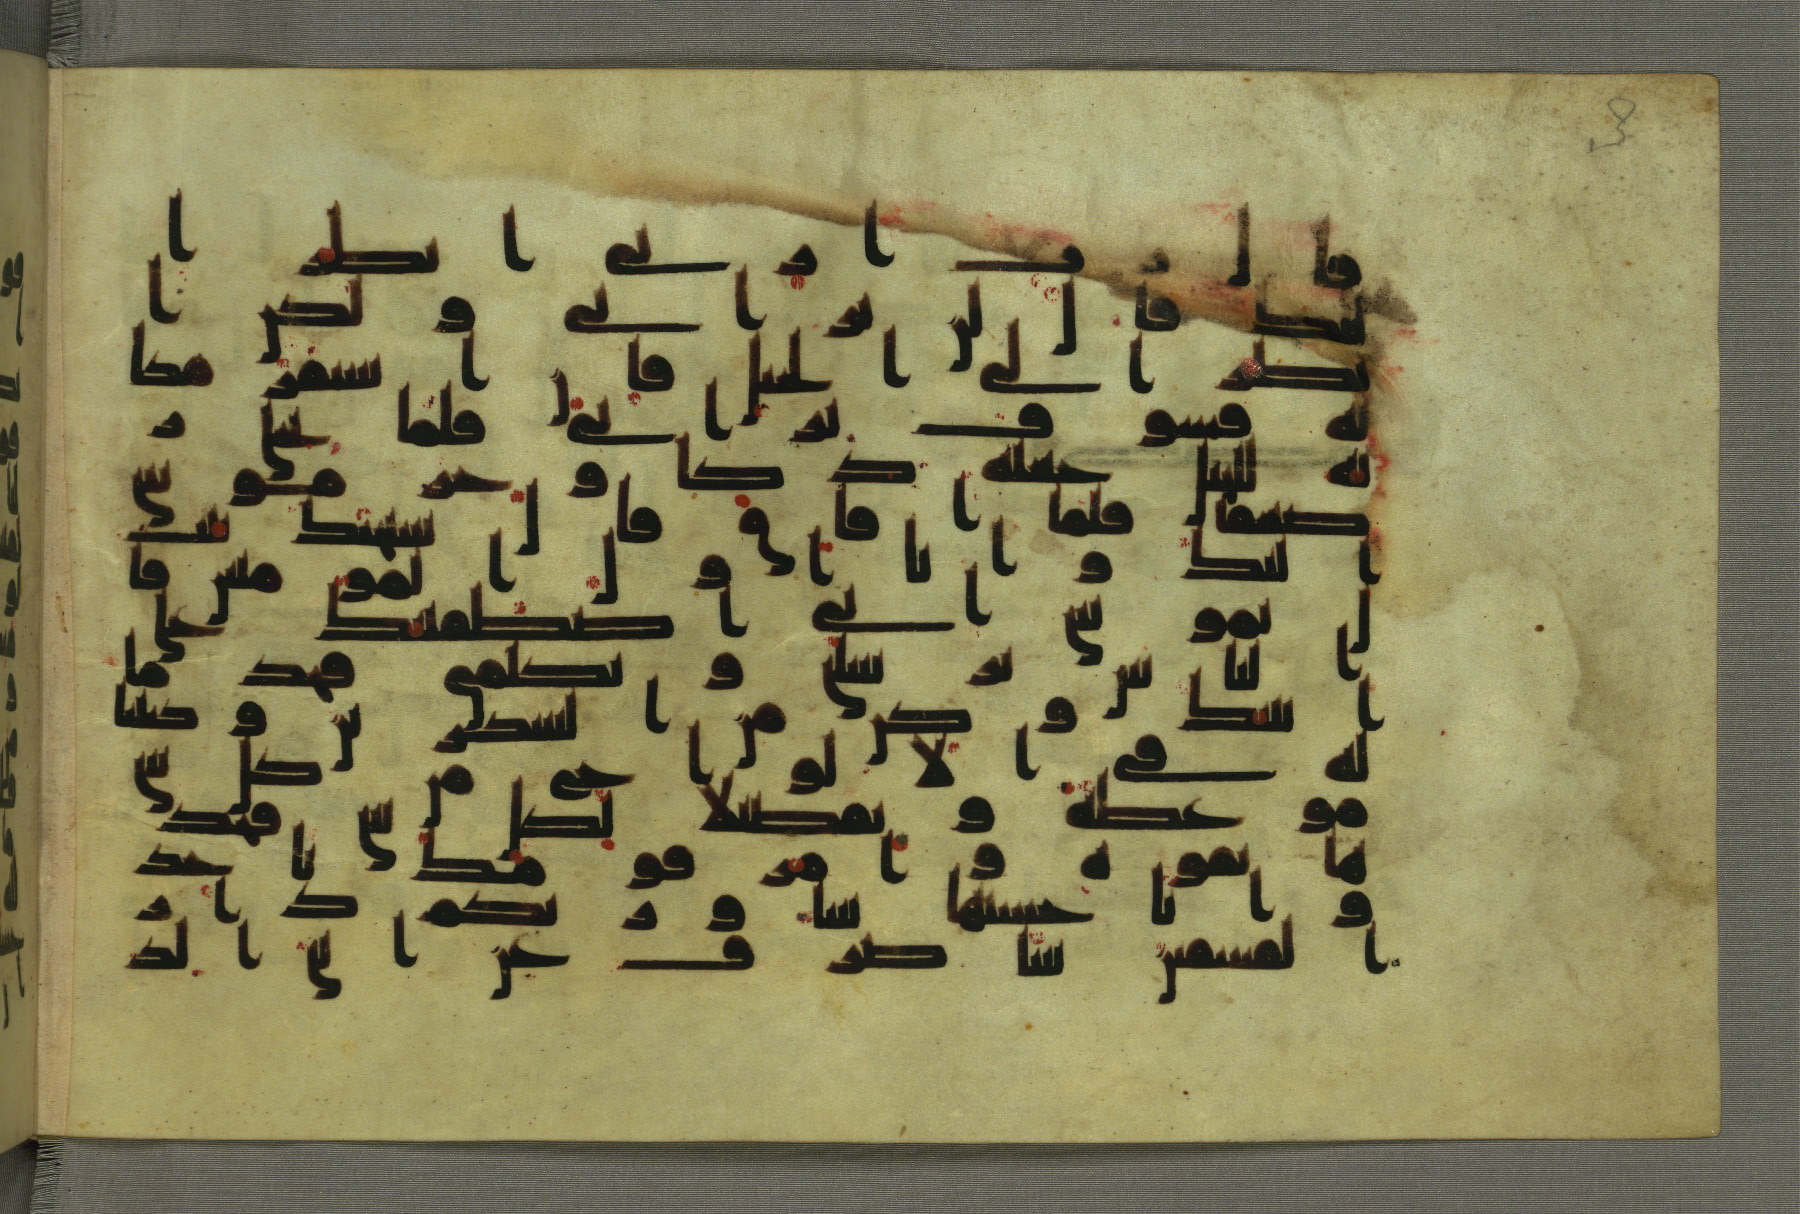 قال رب ارني انظر ا
ليك قال لن تراني ولكن ا
نظر الى الجبل فان استقر مكا
نه فسوف تراني فلما تجلى ر
به للجبل جعله دكا وخر موسى
صعقا فلما افاق قال سبحنك تبت
اليك وانا اول المومنين قا
ل يموسى اني اصطفيتك على
الناس برسلتي وبكلمي فخذ ما
اتيتك وكن من الشكرين وكتبنا
له في الالواح من كل شى
موعظة وتفصيلا لكل شى فخذ
ها بقوة وامر قومك ياخذ
وا باحسنها ساوريكم دار
الفسقين ساصرف عن ايتي الذ